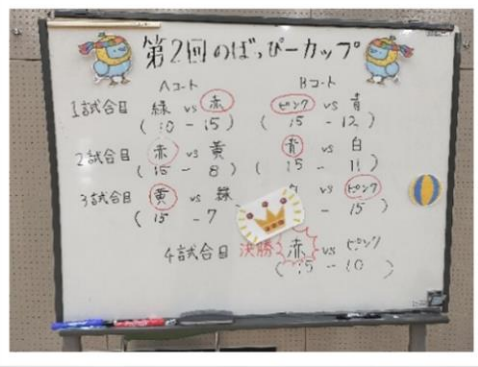 第2回のばっぴーカップ
Aコート Bコート
1試合目 緑 vs 赤 ピンク vs 青
(10-15) (15-12)
2試合目 赤 vs 黄 青 vs 白
(15-8) (15-11)
3試合目 黄 vs 緑 vs ピンク
(15-7 - 15)
4試合目 決勝 赤 vs ピンク
(15-10)